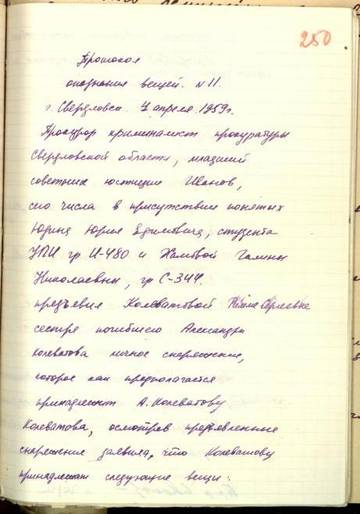 250
Протокол
опознания вещей. N 11.
г. Свердловск. 7 апреля 1959г.
Прокурор криминалист прокуратуры
Свердловской области, младший
советник юстиции Иванов,
сего числа в присутствии понятых
Юдина Юрия Ефимовича, студента
УПИ гр И-480 и
Николаевны, гр С-344.
предъявил Колеватовой Римме Сергеевне
сестре погибшего Александра
Колеватова личное снаряжение,
которое как предполагается
принадлежит А. Колеватову
Колеватова, осмотрев предъявленные
снаряжение заявила, что Колеватову
принадлежат следующие вещи: